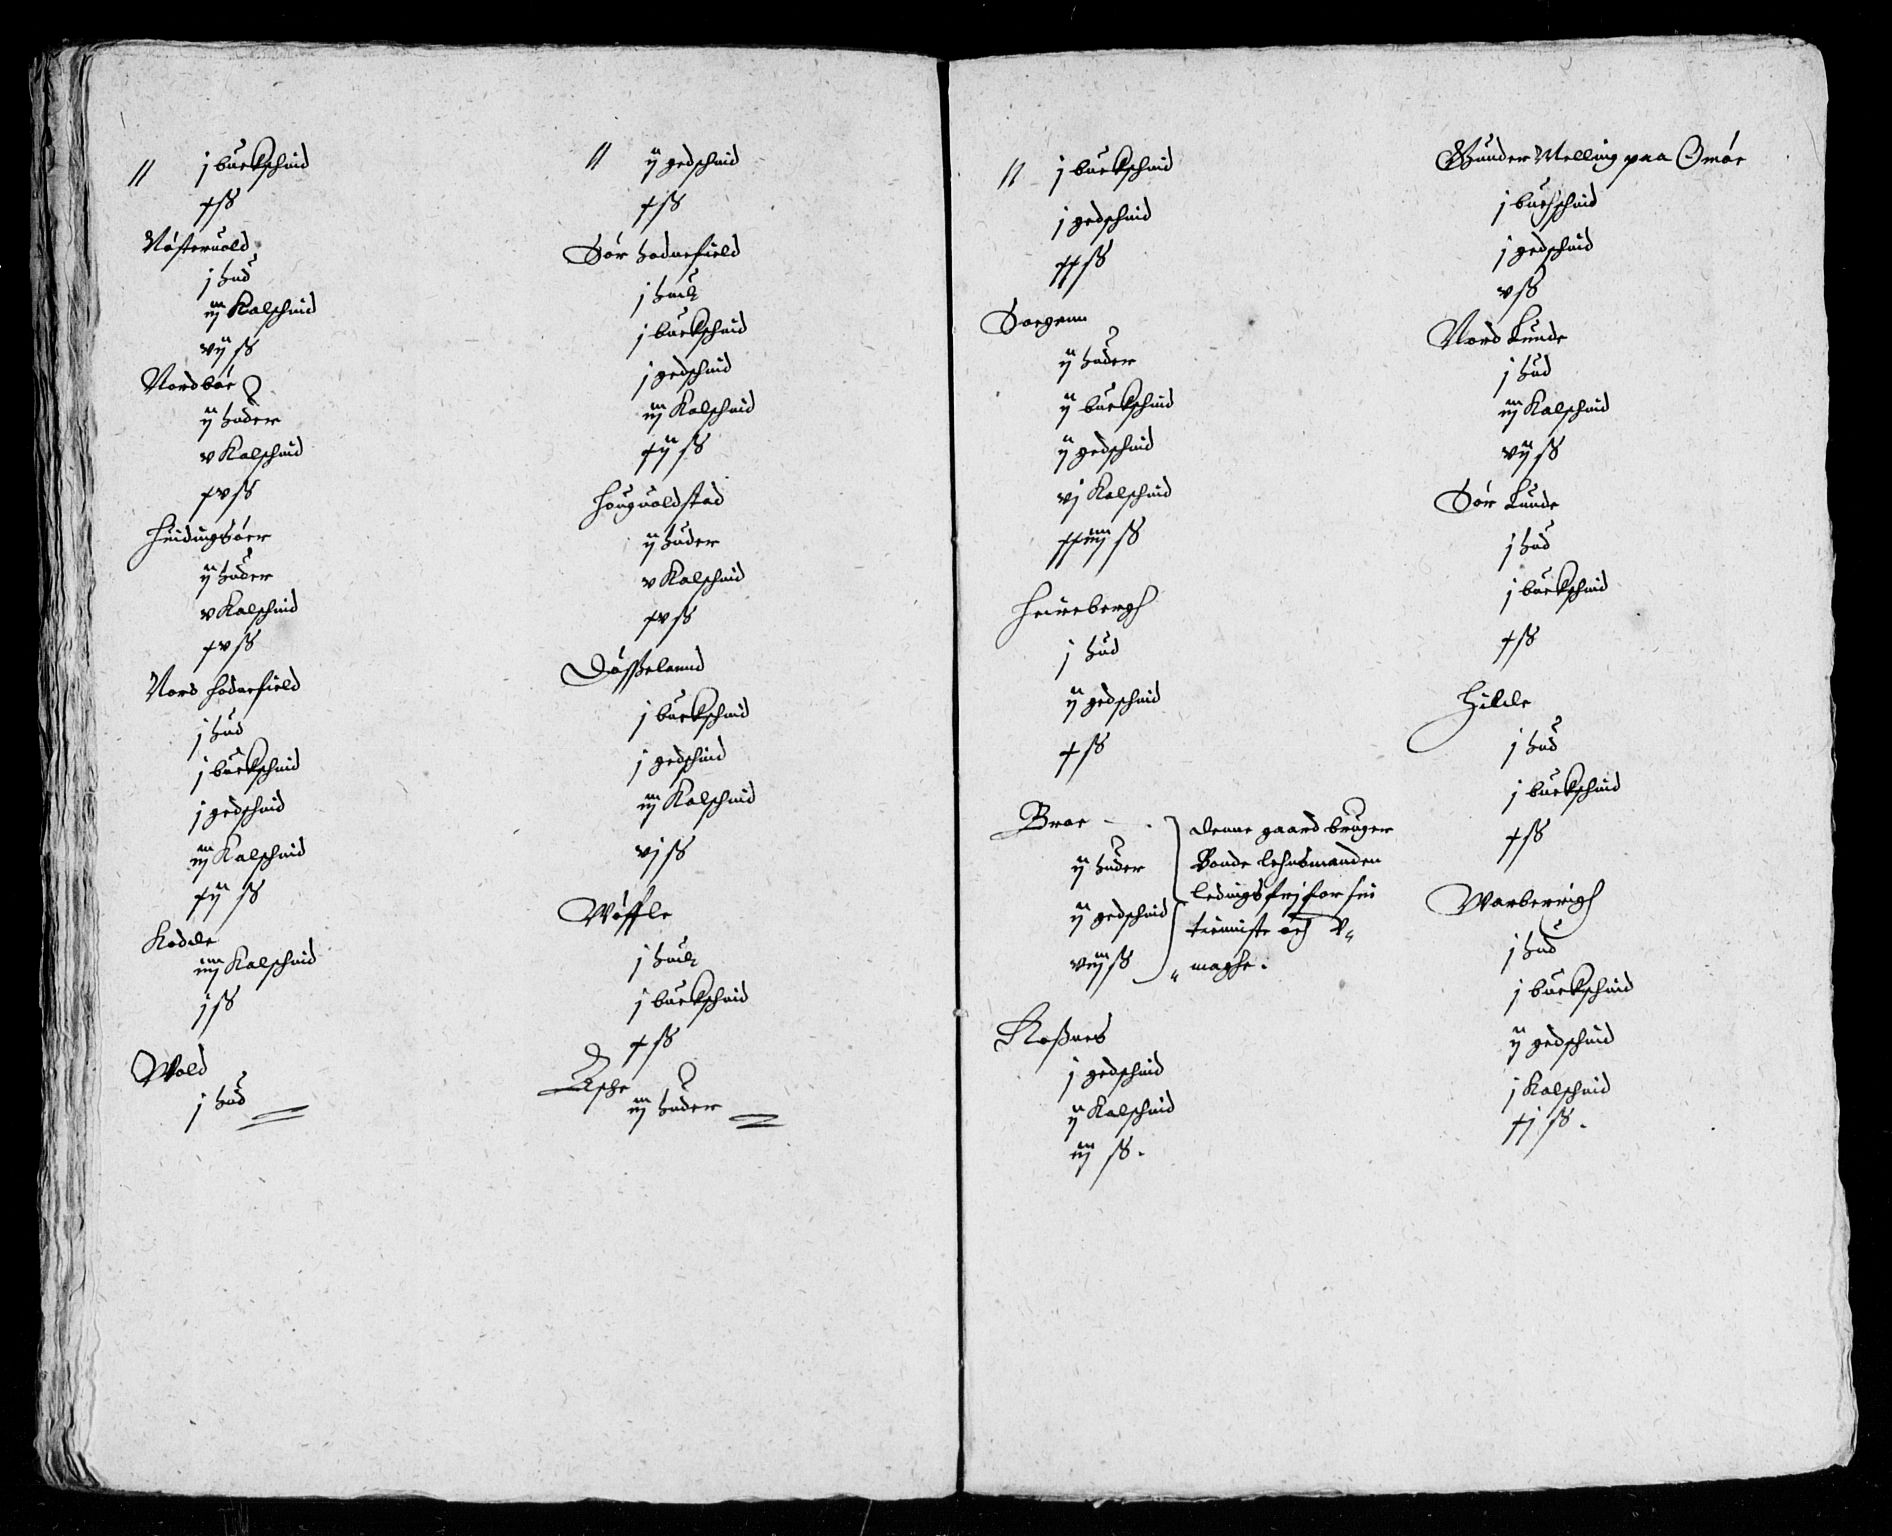 j buckschind
x ß
Nøsteruold
j hud
iij Kalschind
vij ß
Nordbøe
ij huder
v Kalschind
xv ß
Huidingsøer
ij huder
v Kalschind
xv ß
Nord Hodnefield
j hud
j buckschind
j gedschind
iij Kalschind
xij ß
Kodde
iiij Kalschind
j ß
Wold
j hud
ij gedschind
x ß
Sør Hodnefield
j hud
j buckschind
j gedschind
iij Kalschind
xij ß
Houguoldstad
ij huder
v Kalschind
xv ß
Døsselannd
j buckschind
j gedschind
iij Kalschind
vj ß
Wøffle
j hud
j buckschind
x ß
Aske
iij huder
j buckschind
j gedschind
xx ß
Soegenn
ij huder
ij buckschind
ij gedschind
vj Kalschind
xxiiij ß
Heirebergh
j hud
ij gedschind
x ß
Broe
ij huder
ij gedschind
viij ß
denne gaard bruger
Bonde lehnsmanden
ledings frj for sin
tienniste och V
maghe.
Roßnes
j gedschind
ij Kalschind
iij ß.
Wunder Melling paa Omøe
j buckschind
j gedschind
v ß
Nord Lunde
j hud
iij Kalschind
vij ß
Sør Lunde
j hud
j buckschind
x ß
Hilde
j hud
j buckschind
x ß
Warberrigh
j hud
j buckschind
ij gedschind
j Kalschind
xj ß.